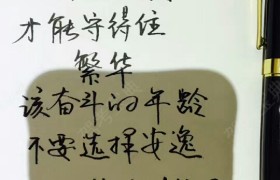 才能守得住
繁华
该奋斗的年龄
不要选择安逸